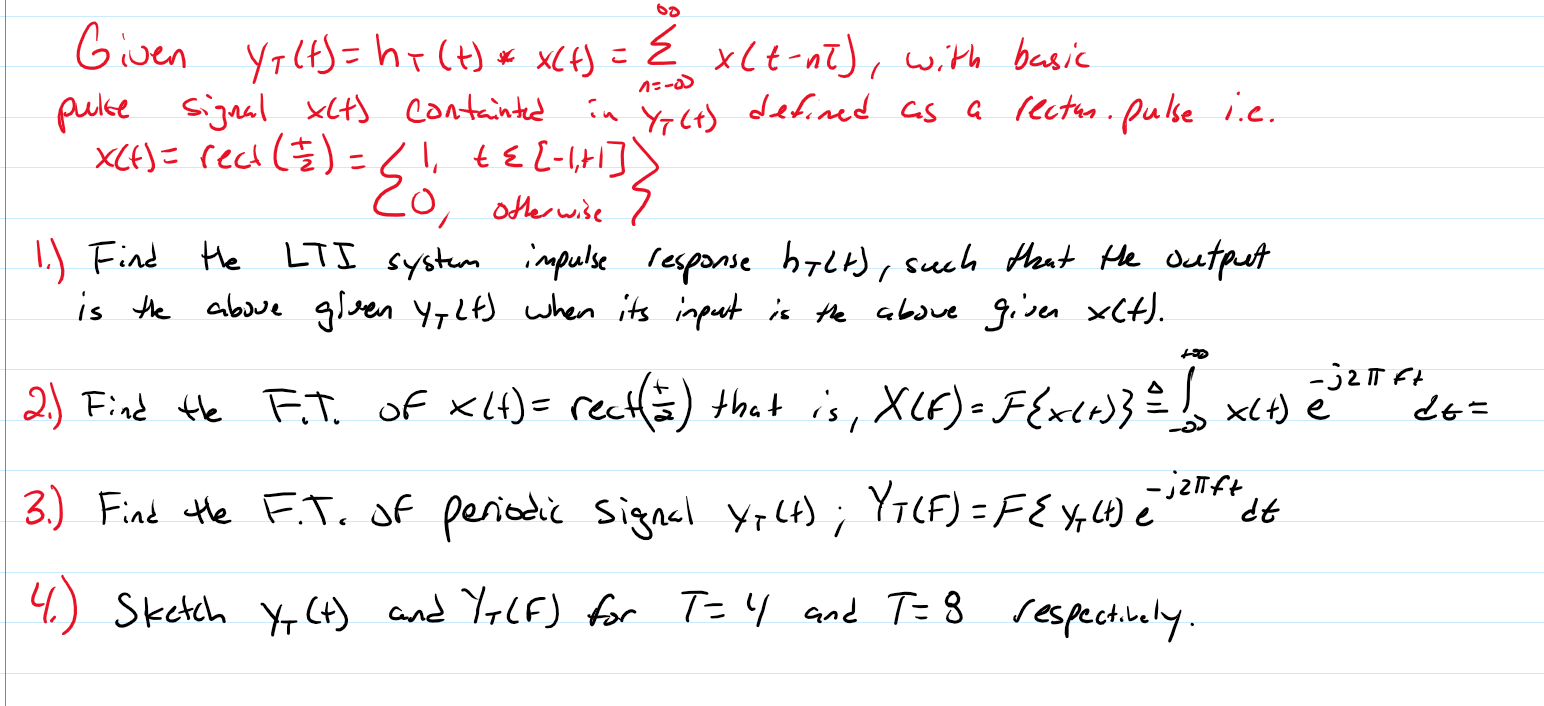 Given y_T(t) = h_T(t) * x(t) = ∑_{n=-∞}^{∞} x(t-nT), with basic
pulse signal x(t) containted in y_T(t) defined as a rectan. pulse i.e.
x(t) = rect(t/2) = { 1, t ε [-1,+1]
0, otherwise }
1.) Find the LTI system impulse response h_T(t), such that the output
is the above given y_T(t) when its input is the above given x(t).
2.) Find the F.T. of x(t) = rect(t/2) that is, X(F) = F{x(t)} ≜ ∫_{-∞}^{+∞} x(t) e^{-j2πft} dt =
3.) Find the F.T. of periodic signal y_T(t) ; Y_T(F) = F{ y_T(t) e^{-j2πft} dt
4.) Sketch y_T(t) and Y_T(F) for T=4 and T=8 respectively.